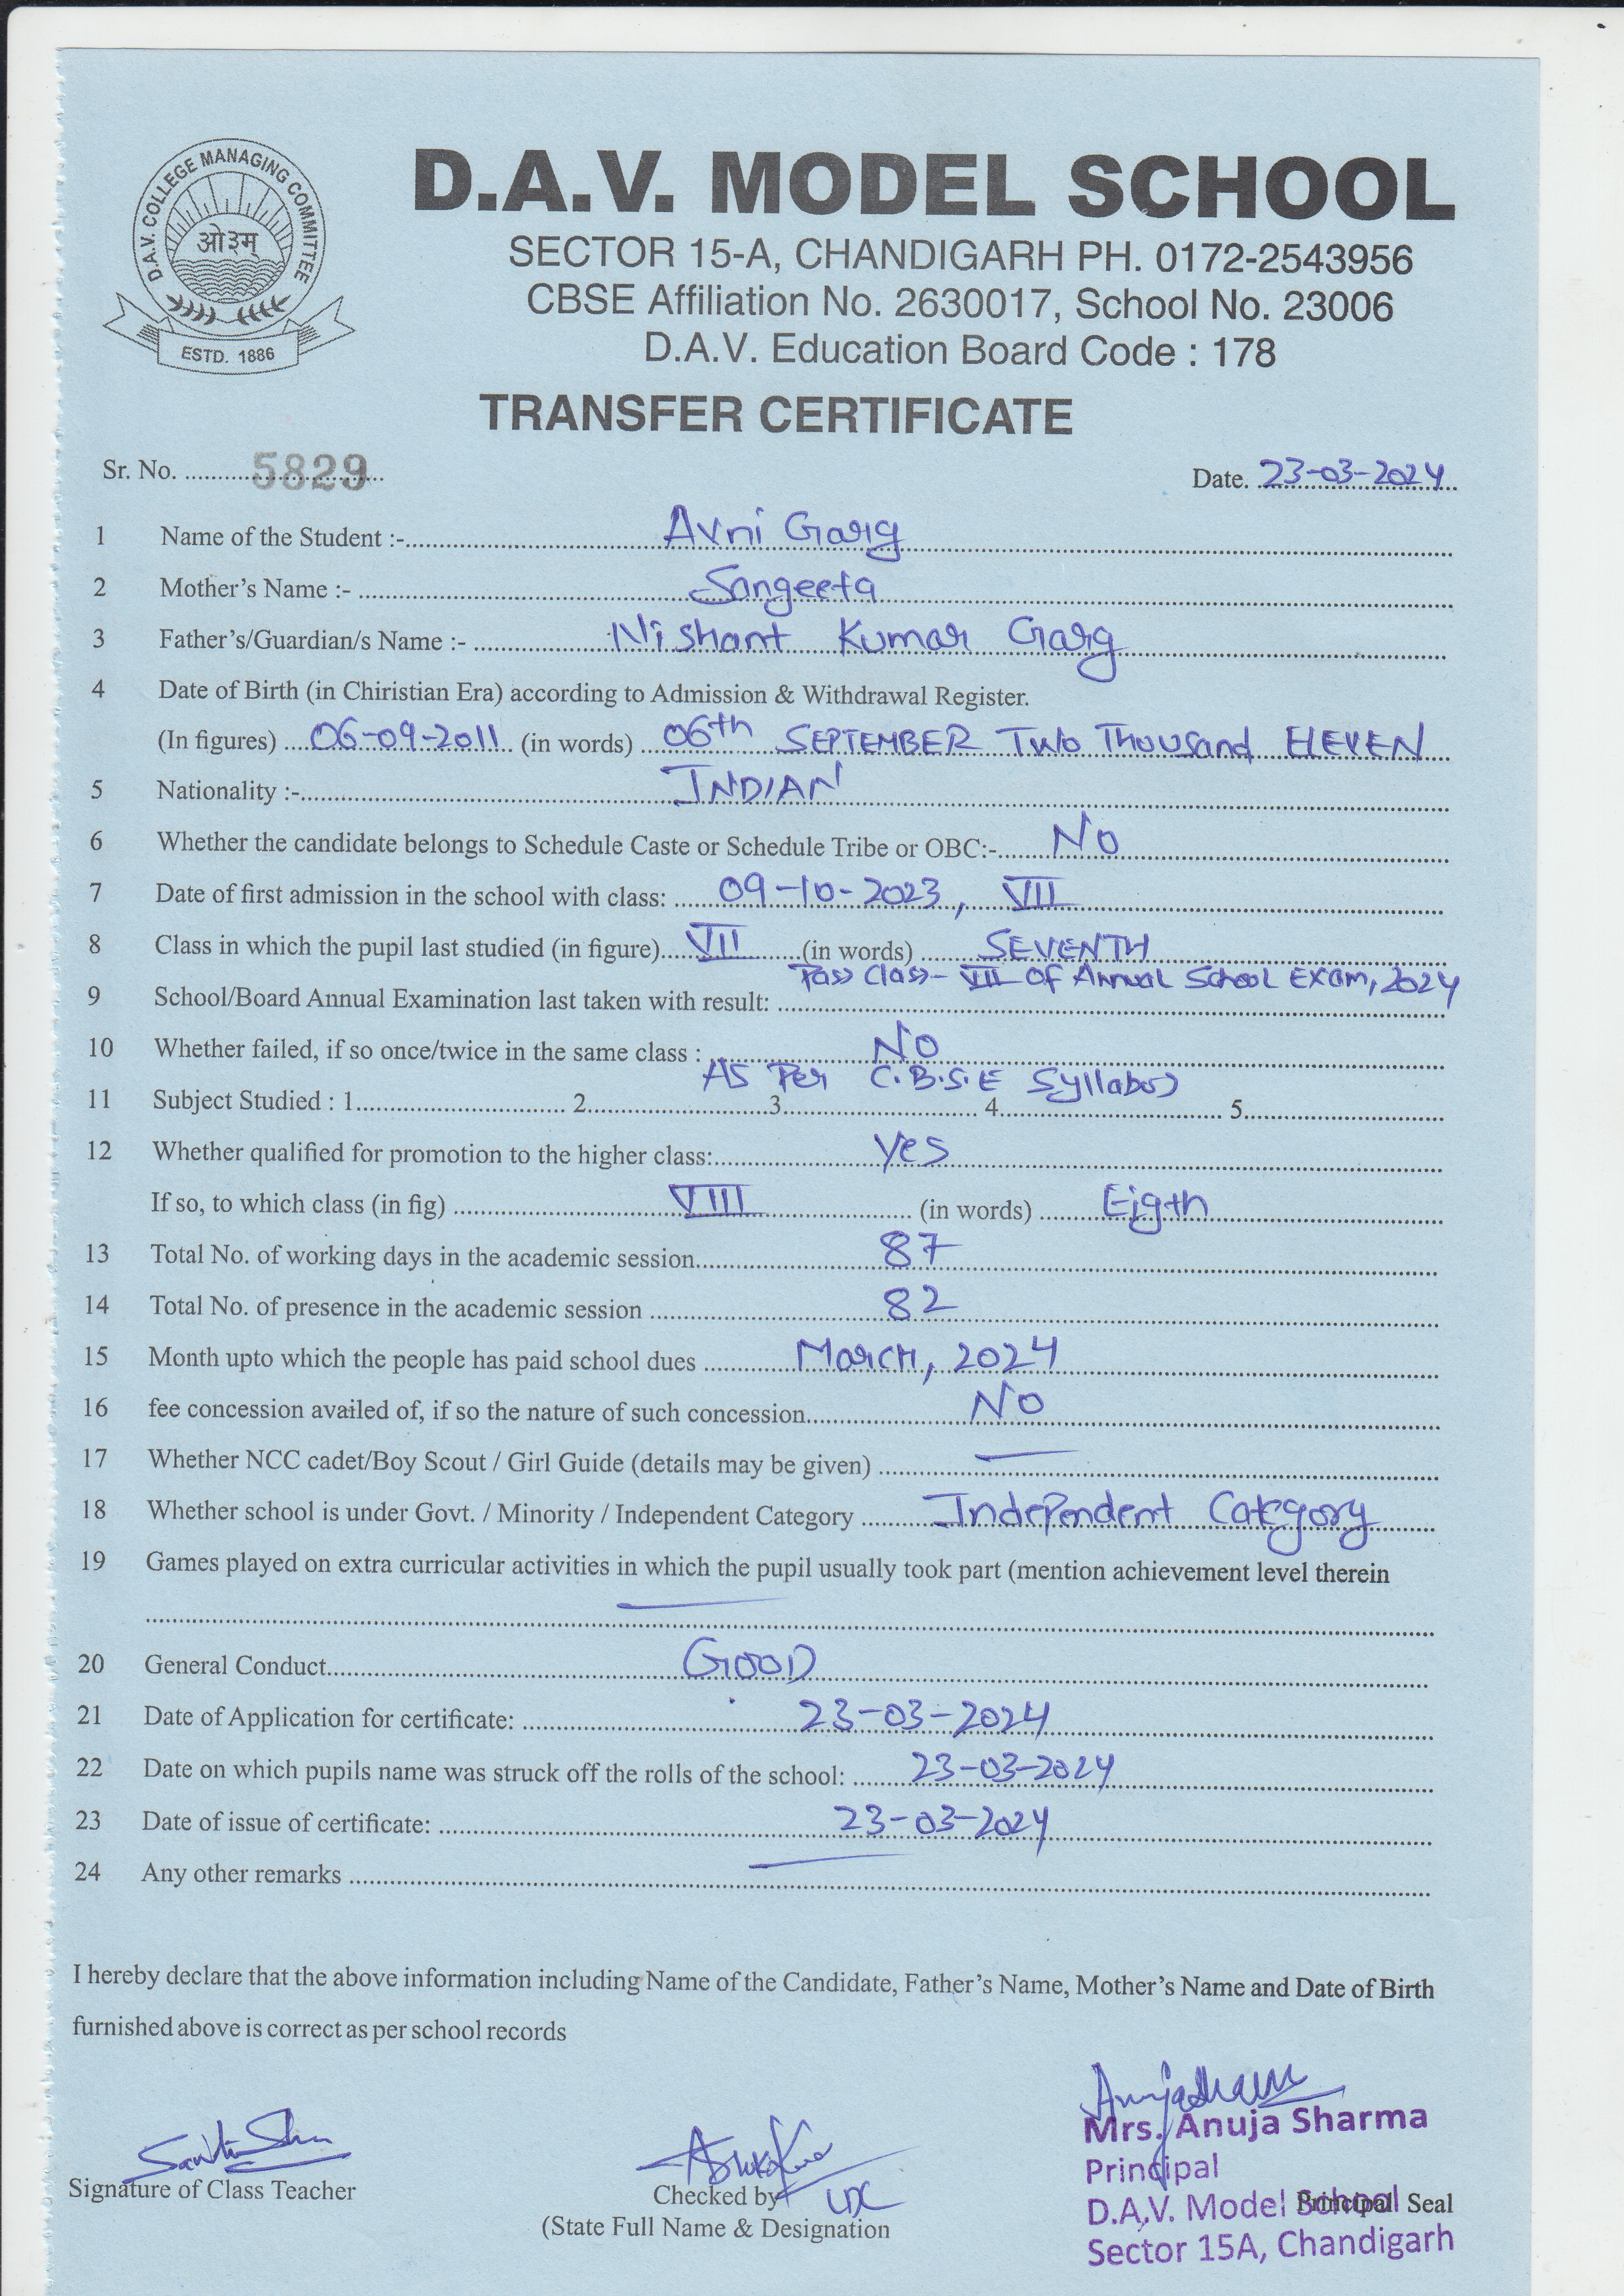 D.A.V. COLLEGE MANAGING COMMITTEE
ओ३म्
ESTD. 1886
D.A.V. MODEL SCHOOL
SECTOR 15-A, CHANDIGARH PH. 0172-2543956
CBSE Affiliation No. 2630017, School No. 23006
D.A.V. Education Board Code : 178
TRANSFER CERTIFICATE
Sr. No. 5829 Date. 23-03-2024
1 Name of the Student :- Avni Garg
2 Mother's Name :- Sangeeta
3 Father's/Guardian/s Name :- Nishant Kumar Garg
4 Date of Birth (in Chiristian Era) according to Admission & Withdrawal Register.
(In figures) 06-09-2011 (in words) 06th SEPTEMBER Two Thousand ELEVEN
5 Nationality :- INDIAN
6 Whether the candidate belongs to Schedule Caste or Schedule Tribe or OBC:- No
7 Date of first admission in the school with class: 09-10-2023, VII
8 Class in which the pupil last studied (in figure) VII (in words) SEVENTH
Pass Class- VII Of Annual School Exam, 2024
9 School/Board Annual Examination last taken with result:
10 Whether failed, if so once/twice in the same class : No
As Per C.B.S.E Syllabus
11 Subject Studied : 1 2 3 4 5
12 Whether qualified for promotion to the higher class: Yes
If so, to which class (in fig) VIII (in words) Eigth
13 Total No. of working days in the academic session 87
14 Total No. of presence in the academic session 82
15 Month upto which the people has paid school dues March, 2024
16 fee concession availed of, if so the nature of such concession No
17 Whether NCC cadet/Boy Scout / Girl Guide (details may be given) —
18 Whether school is under Govt. / Minority / Independent Category Independent Category
19 Games played on extra curricular activities in which the pupil usually took part (mention achievement level therein
—
20 General Conduct GOOD
21 Date of Application for certificate: 23-03-2024
22 Date on which pupils name was struck off the rolls of the school: 23-03-2024
23 Date of issue of certificate: 23-03-2024
24 Any other remarks —
I hereby declare that the above information including Name of the Candidate, Father's Name, Mother's Name and Date of Birth
furnished above is correct as per school records
Mrs. Anuja Sharma
Principal
D.A.V. Model School
Sector 15A, Chandigarh
Signature of Class Teacher
Checked by LDC
(State Full Name & Designation
Principal Seal